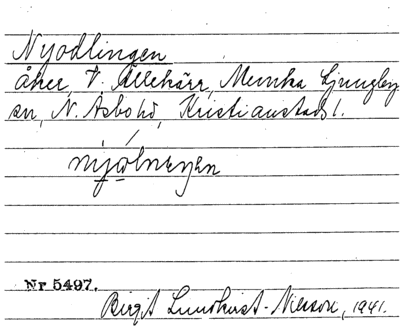 Nyodlingen
åker, V. Allekärr, Munka Ljungby
sn, N. Åsbo hd, Kristianstads l.
Nr 5497.
Birgit Lundkvist-Nilsson, 1941.